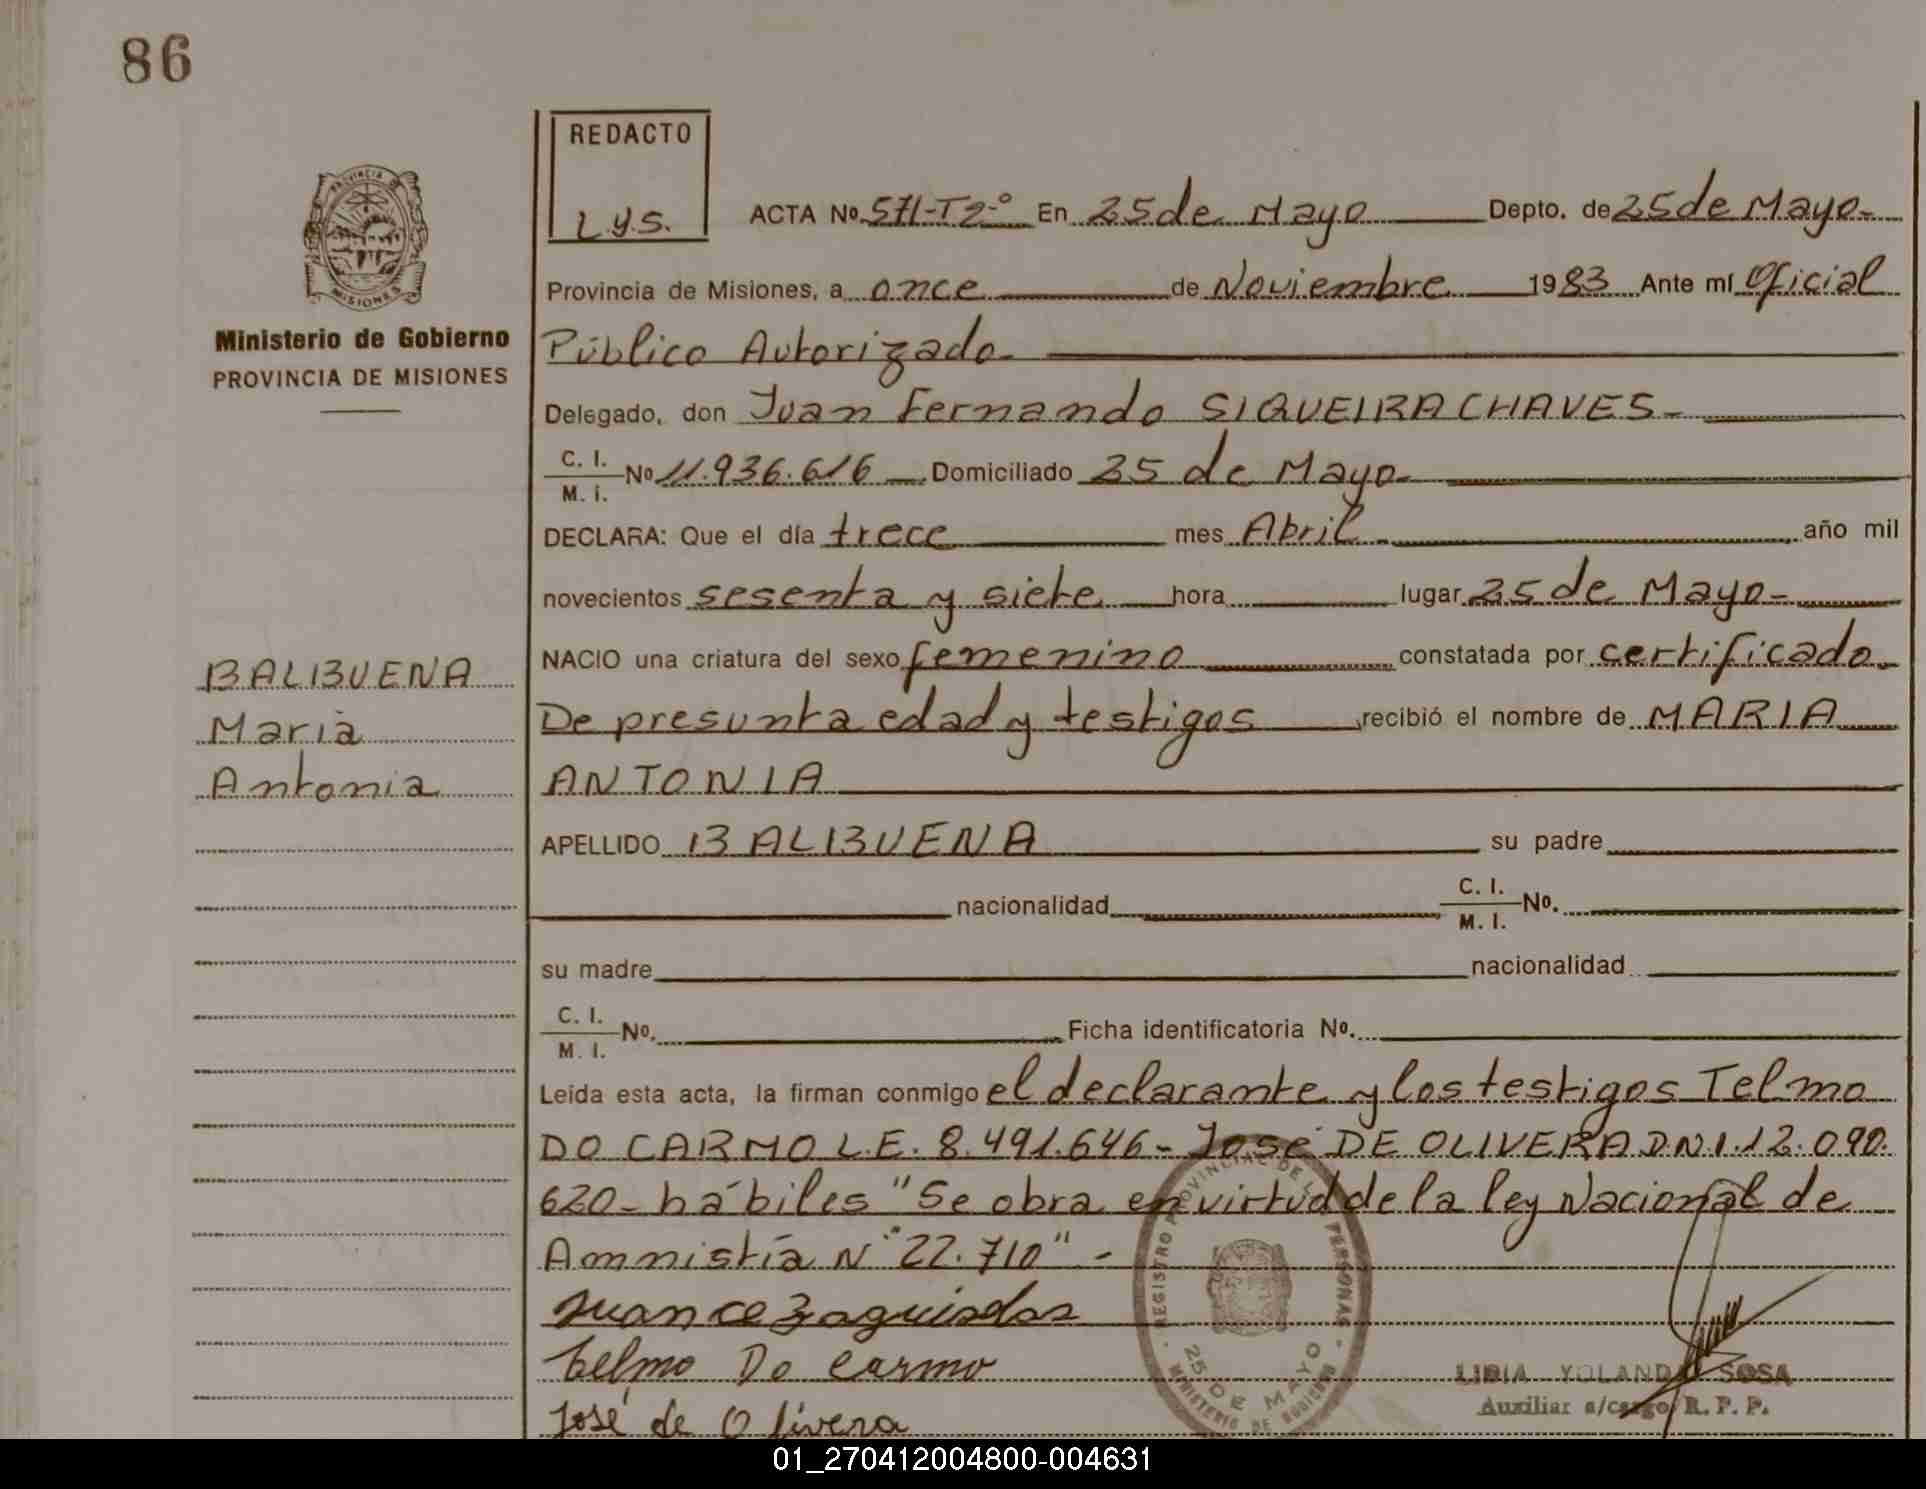 86
REDACTO
L.Y.S.
ACTA Nº 571-T2º En 25 de Mayo Depto. de 25 de Mayo-
PROVINCIA DE
MISIONES
Provincia de Misiones, a once de Noviembre 1983 Ante mí Oficial
Ministerio de Gobierno
PROVINCIA DE MISIONES
Público Autorizado-
Delegado, don Juan Fernando SIQUEIRA CHAVES-
C. I.
M. I. Nº 11.936.616 Domiciliado 25 de Mayo-
DECLARA: Que el día trece mes Abril- año mil
novecientos sesenta y siete hora lugar 25 de Mayo-
NACIO una criatura del sexo femenino constatada por certificado-
BALBUENA
Maria
Antonia
De presunta edad y testigos recibió el nombre de MARIA
ANTONIA
APELLIDO BALBUENA su padre
nacionalidad C. I.
M. I. Nº.
su madre nacionalidad
C. I.
M. I. Nº. Ficha identificatoria Nº.
Leída esta acta, la firman conmigo el declarante y los testigos Telmo
DO CARMO L.E. 8.491.646- José DE OLIVERA D.N.I. 12.090.
620- hábiles "Se obra en virtud de la ley Nacional de
Amnistía Nº 22.710" -
Telmo Do Carmo
José de Olivera
REGISTRO PROVINCIAL DE LAS PERSONAS
25 DE MAYO
MINISTERIO DE GOBIERNO
LIDIA YOLANDA SOSA
Auxiliar a/cargo R. P. P.
01_270412004800-004631